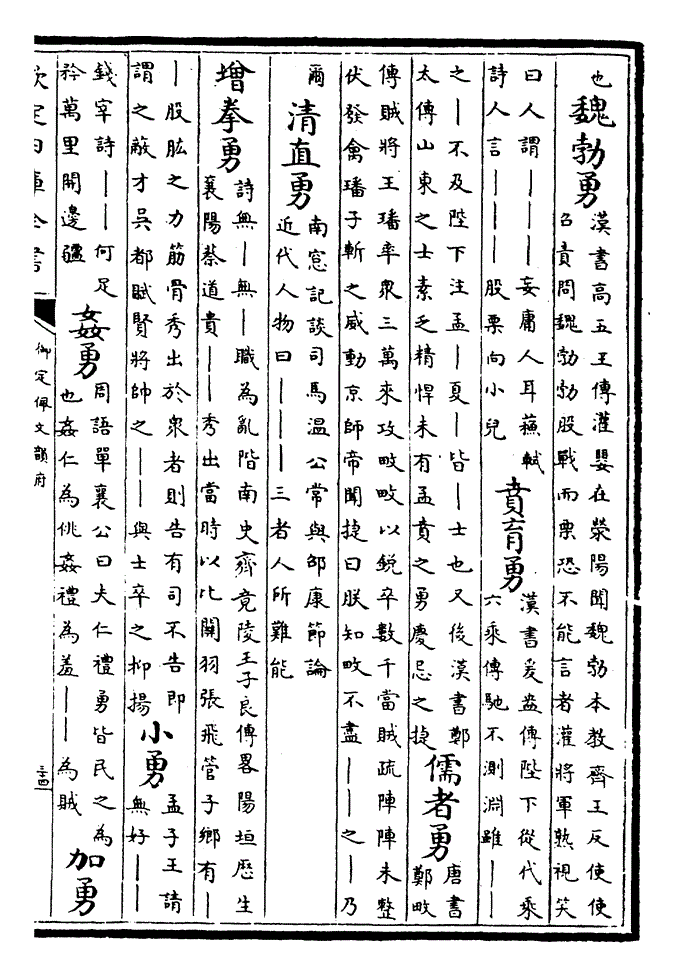 也
魏勃勇
漢書高五王傳灌嬰在滎陽聞魏勃本教齊王反使使
召責問魏勃勃股戰而栗恐不能言者灌將軍熟視笑
曰人謂｜｜｜妄庸人耳蘇軾
詩人言｜｜｜股栗向小兒
賁育勇
漢書爰盎傳陛下從代乘
六乘傳馳不測淵雖｜｜
之｜不及陛下注孟｜夏｜皆｜士也又後漢書鄭
太傳山東之士素乏精悍未有孟賁之勇慶忌之捷
儒者勇
唐書
鄭畋
傳賊將王璠率衆三萬來攻畋畋以銳卒數千當賊疏陣陣未整
伏發禽璠子斬之威動京師帝聞捷曰朕知畋不盡｜｜之｜乃
爾
清直勇
南窓記談司馬温公常與邵康節論
近代人物曰｜｜｜三者人所難能
增拳勇
詩無｜無｜職為亂階南史齊竟陵王子良傳畧陽垣歷生
襄陽蔡道貴｜｜秀出當時以比關羽張飛管子鄉有｜
｜股肱之力筋骨秀出於衆者則告有司不告即
謂之蔽才吳都賦賢將帥之｜｜與士卒之抑揚
小勇
孟子王請
無好｜｜
錢宰詩｜｜何足
矜萬里開邊疆
姦勇
周語單襄公曰夫仁禮勇皆民之為
也姦仁為佻姦禮為羞｜｜為賊
加勇
欽定四庫全書
御定佩文韻府
三十四